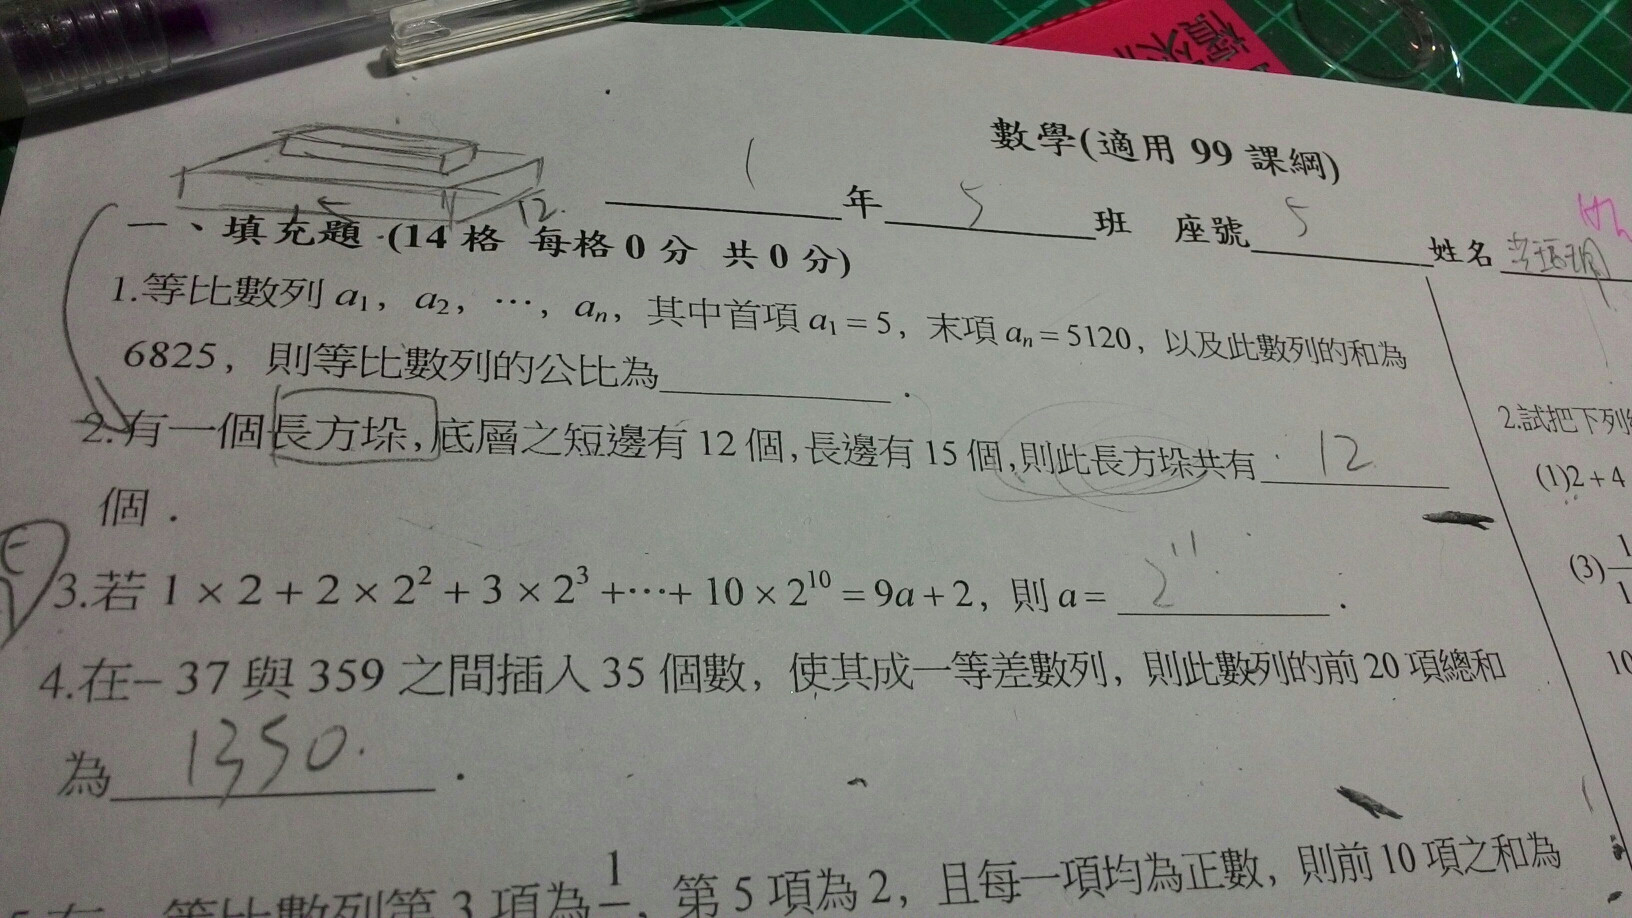 數學(適用 99 課綱)
1 年 5 班 座號 5 姓名
12.
一、填充題 (14 格 每格 0 分 共 0 分)
1.等比數列 a₁, a₂, ⋯, aₙ, 其中首項 a₁ = 5, 末項 aₙ = 5120, 以及此數列的和為
6825, 則等比數列的公比為 .
2.有一個長方垛, 底層之短邊有 12 個, 長邊有 15 個, 則此長方垛共有 12
個.
3.若 1 × 2 + 2 × 2² + 3 × 2³ +⋯+ 10 × 2¹⁰ = 9a + 2, 則 a = 2¹¹ .
4.在– 37 與 359 之間插入 35 個數, 使其成一等差數列, 則此數列的前 20 項總和
為 1350. .
等比數列第 3 項為 1, 第 5 項為 2, 且每一項均為正數, 則前 10 項之和為
2.試把下列
(1)2 + 4
(3) 1
10